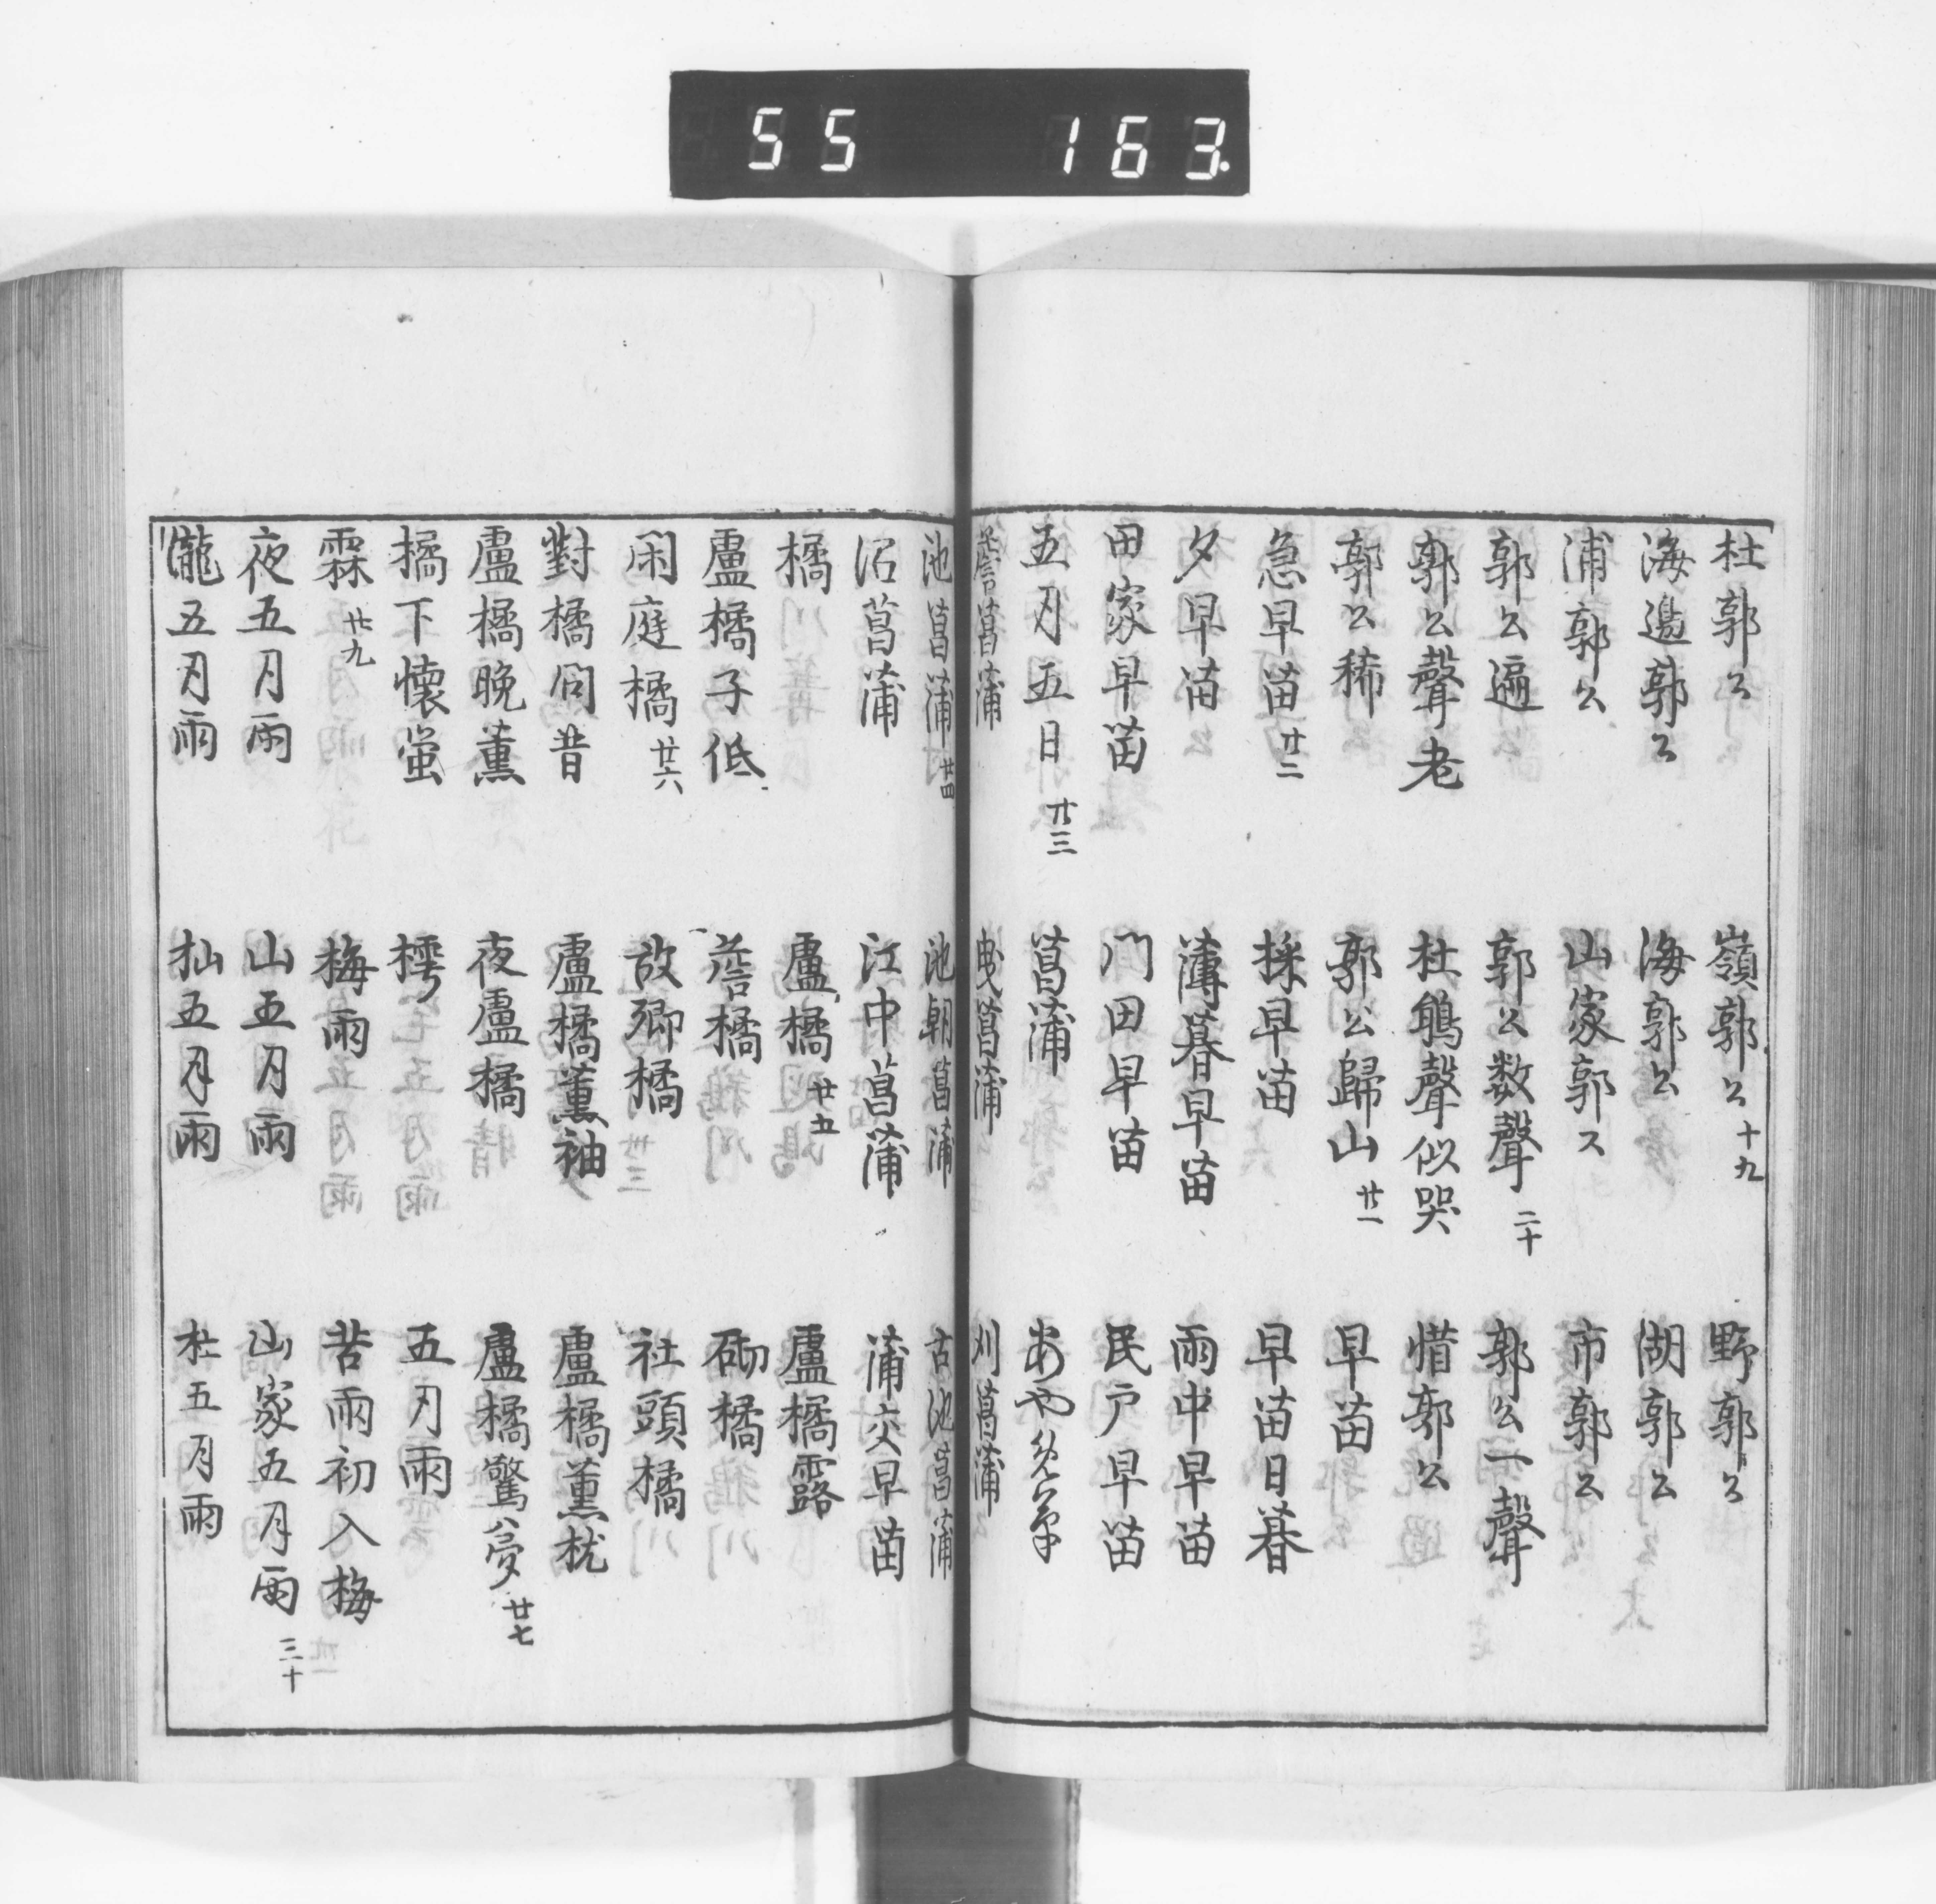 55 163
杜郭公 嶺郭公 十九 野郭公
海邊郭公 海郭公 湖郭公
浦郭公 山家郭公 市郭公
郭公遍 郭公数聲 二十 郭公一聲
郭公聲老 杜鵑聲似哭 惜郭公
郭公稀 郭公歸山 廿一 早苗
急早苗 廿二 採早苗 早苗日暮
夕早苗 薄暮早苗 雨中早苗
田家早苗 門田早苗 民戸早苗
五月五日 廿三 菖蒲 あやめ草
簷菖蒲 曳菖蒲 刈菖蒲
池菖蒲 廿四 池朝菖蒲 古池菖蒲
沼菖蒲 江中菖蒲 蒲交早苗
橘 盧橘 廿五 盧橘露
盧橘子低 簷橘 砌橘
閑庭橘 廿六 故郷橘 社頭橘
對橘問昔 盧橘薫袖 盧橘薫枕
盧橘晩薫 夜盧橘 盧橘驚夢 廿七
橘下懐蛍 樗 五月雨
霖 廿九 梅雨 苦雨初入梅
夜五月雨 山五月雨 山家五月雨 三十
瀧五月雨 杣五月雨 杜五月雨